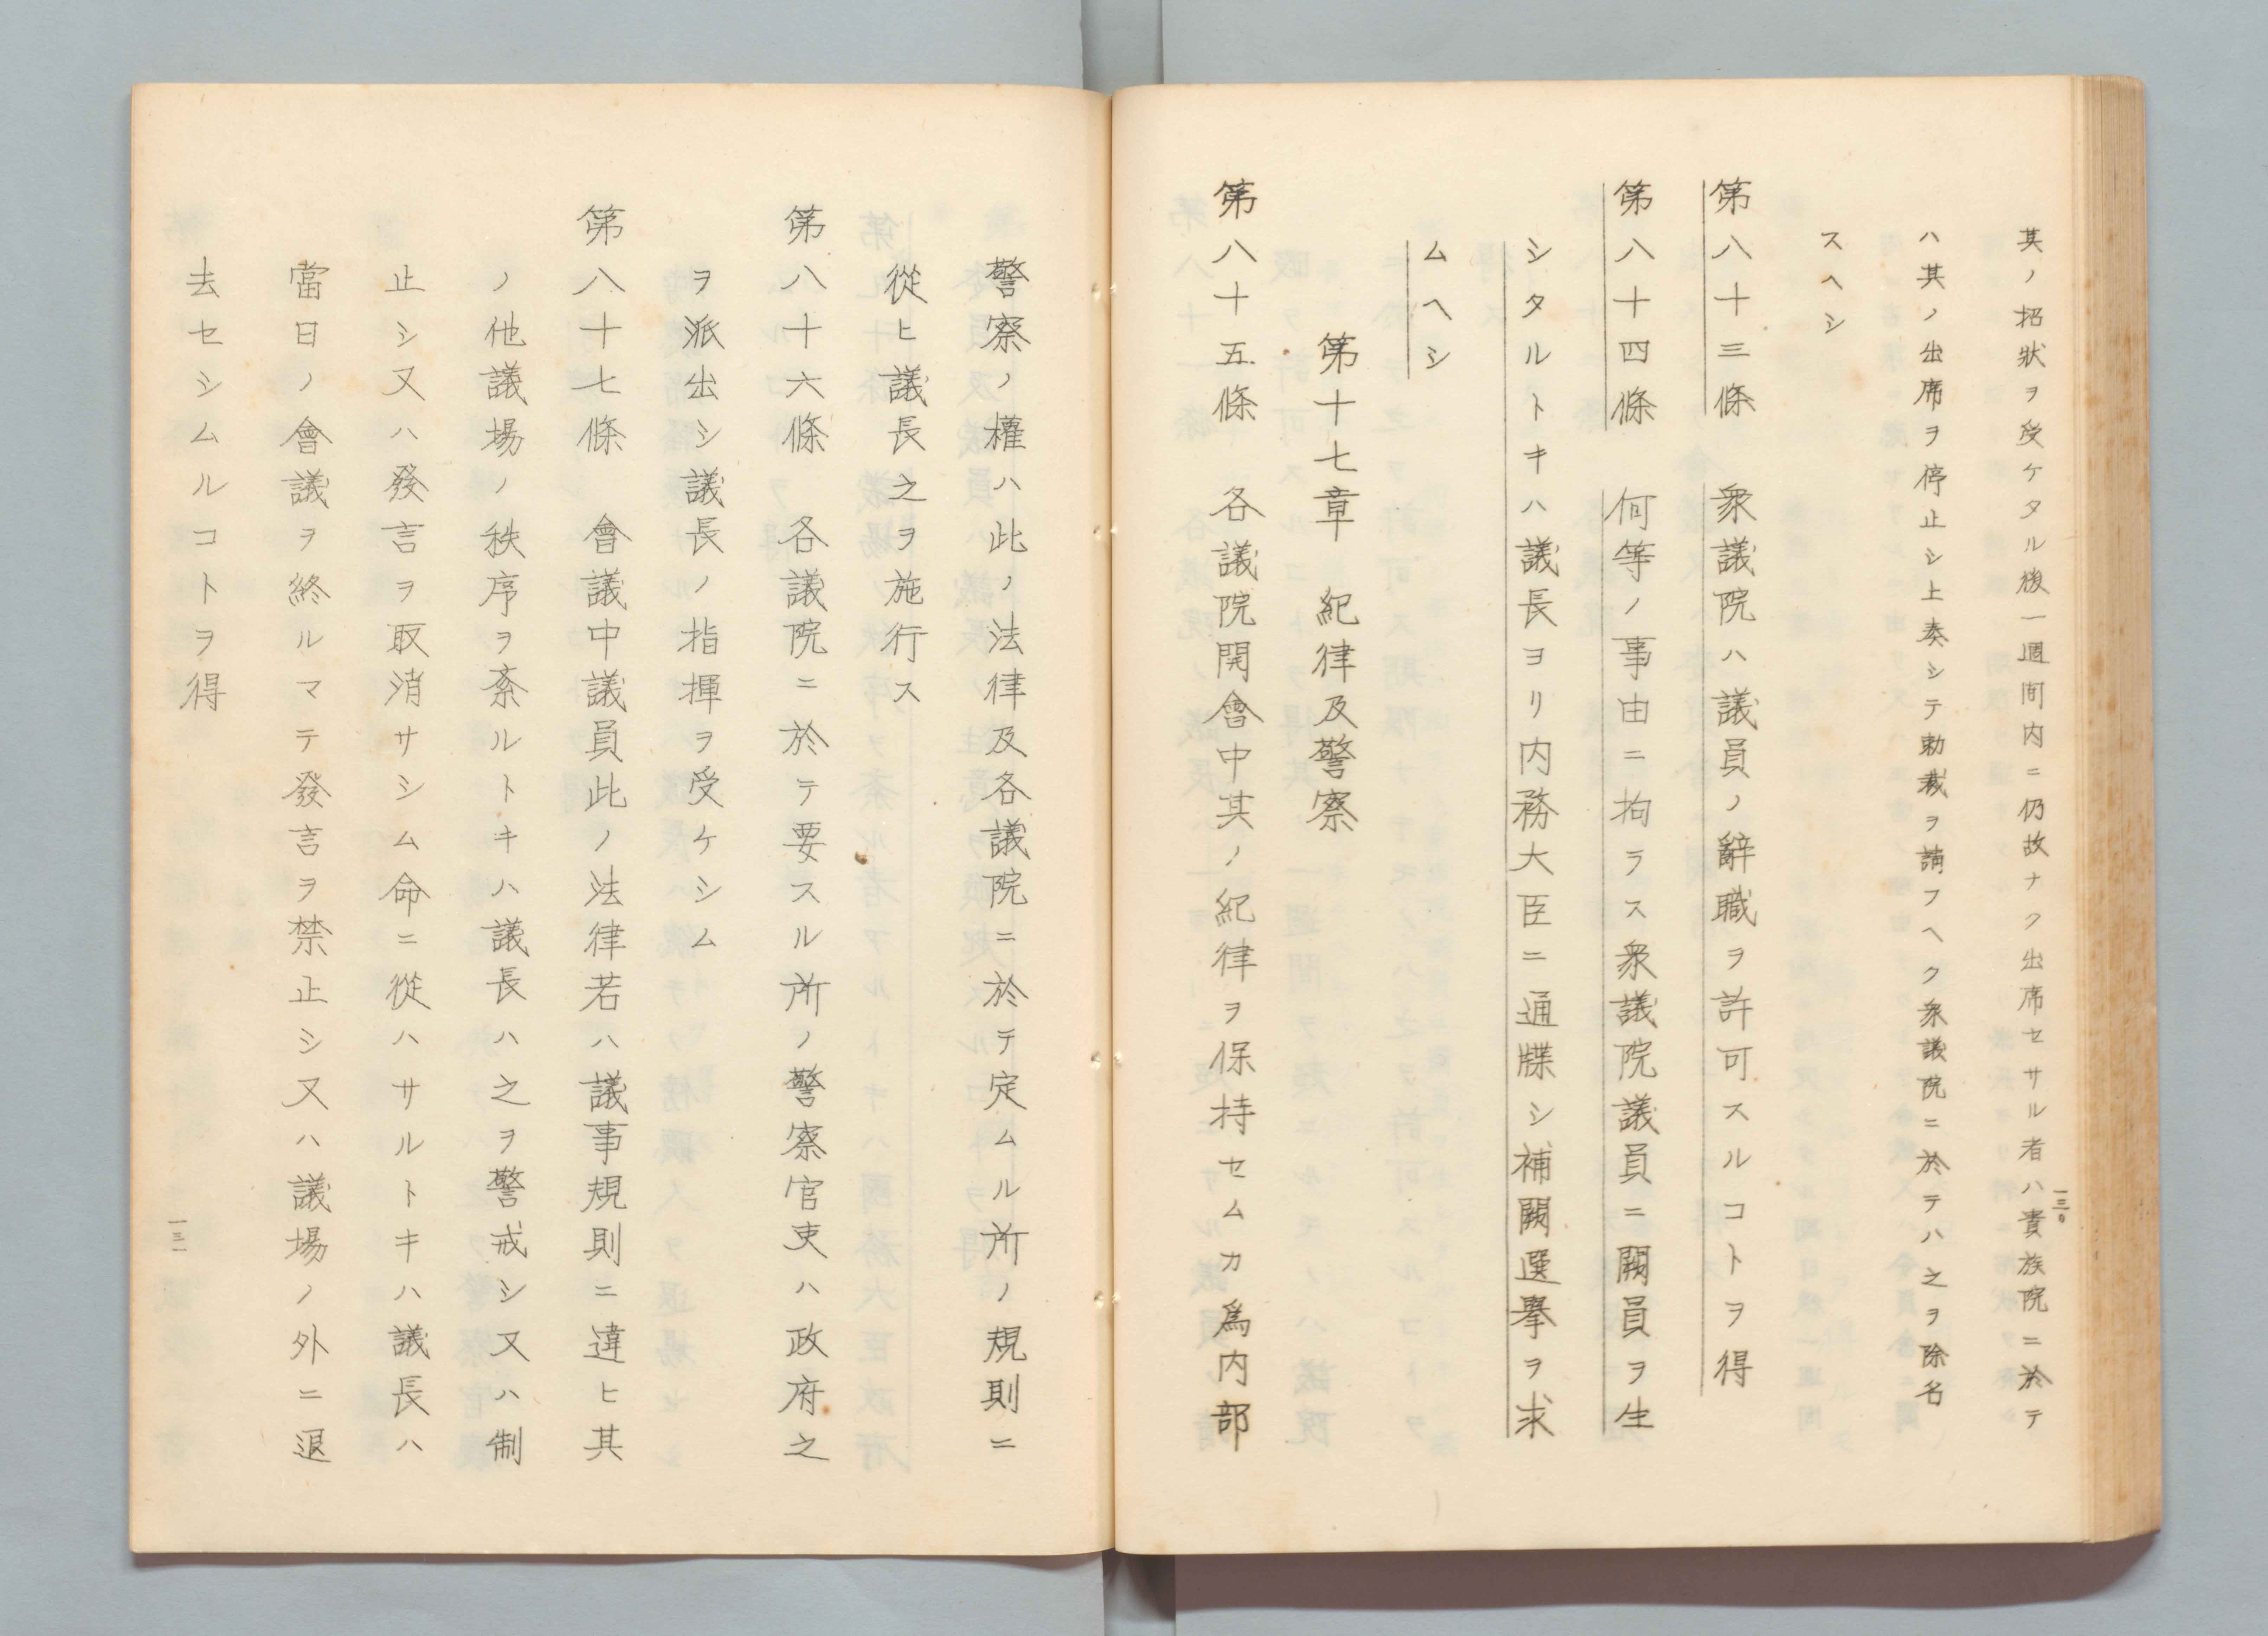 其ノ招狀ヲ受ケタル後一週間内ニ仍故ナク出席セサル者ハ貴族院ニ於テ
ハ其ノ出席ヲ停止シ上奏シテ勅裁ヲ請フヘク衆議院ニ於テハ之ヲ除名
スヘシ
第八十三條　衆議院ハ議員ノ辭職ヲ許可スルコトヲ得
第八十四條　何等ノ事由ニ拘ラス衆議院議員ニ闕員ヲ生
シタルトキハ議長ヨリ内務大臣ニ通牒シ補闕選擧ヲ求
ムヘシ
第十七章　紀律及警察
第八十五條　各議院開會中其ノ紀律ヲ保持セムカ爲内部
一三〇
警察ノ權ハ此ノ法律及各議院ニ於テ定ムル所ノ規則ニ
從ヒ議長之ヲ施行ス
第八十六條　各議院ニ於テ要スル所ノ警察官吏ハ政府之
ヲ派出シ議長ノ指揮ヲ受ケシム
第八十七條　會議中議員此ノ法律若ハ議事規則ニ違ヒ其
ノ他議場ノ秩序ヲ紊ルトキハ議長ハ之ヲ警戒シ又ハ制
止シ又ハ發言ヲ取消サシム命ニ從ハサルトキハ議長ハ
當日ノ會議ヲ終ルマテ發言ヲ禁止シ又ハ議場ノ外ニ退
去セシムルコトヲ得
一三一